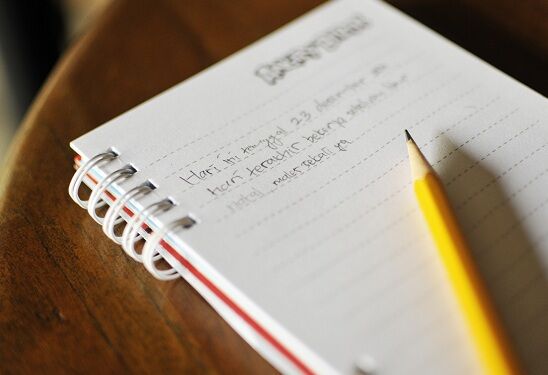 Hari ini tanggal 23 desember
hari terakhir bekerja sebelum libur
Natal malas sekali